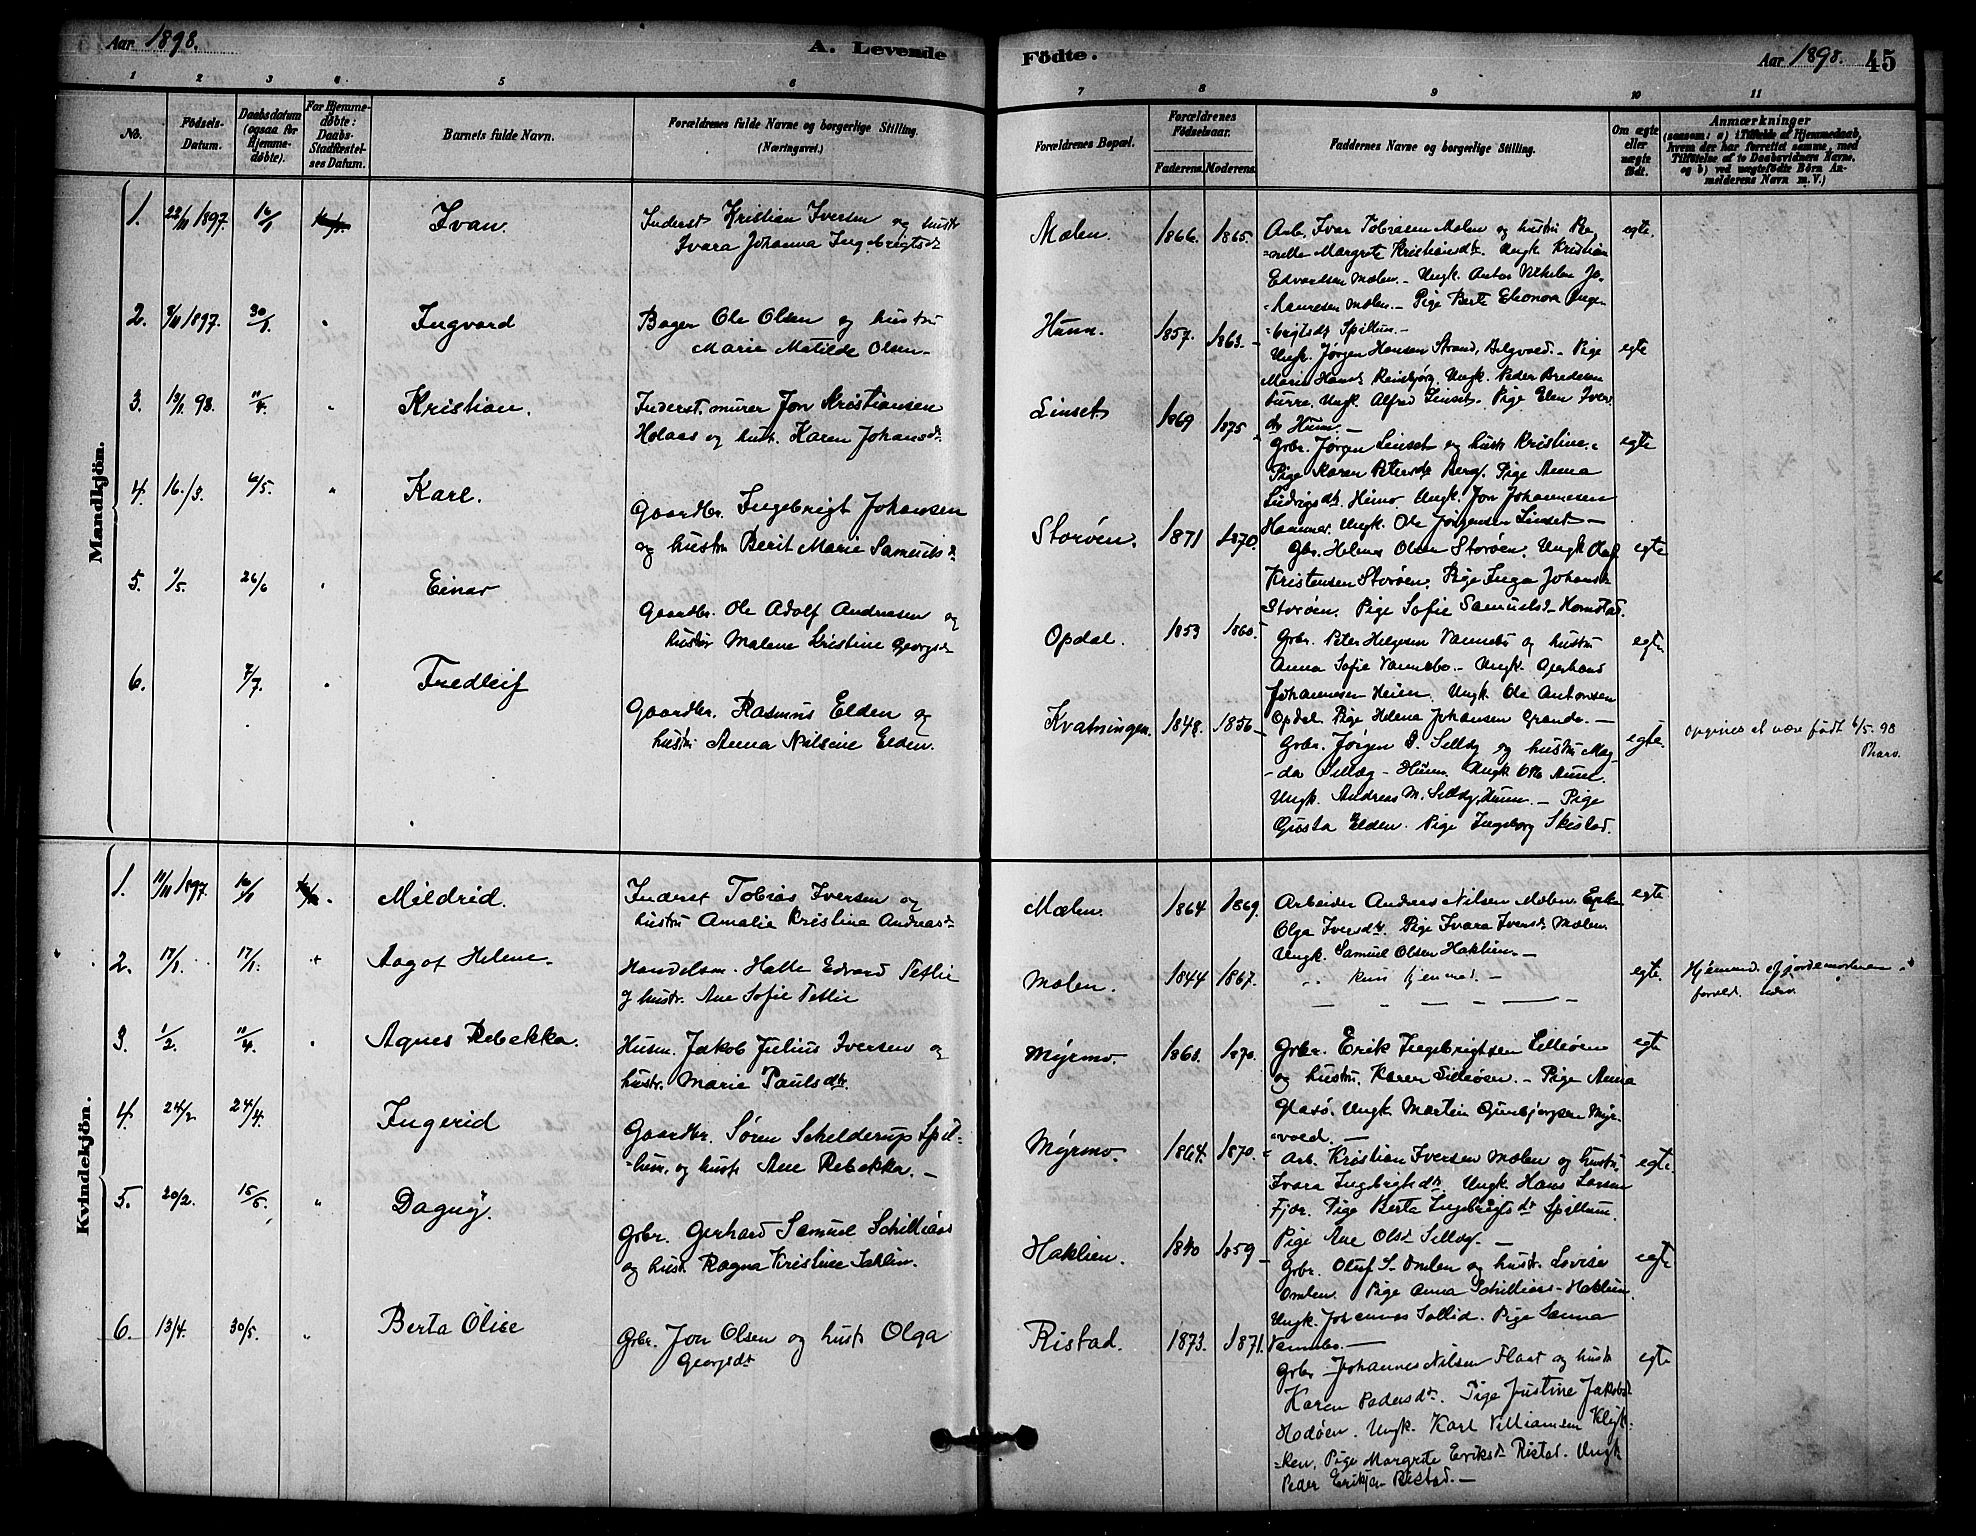 Aar 1898. A. Levende Födte. Aar 1898. 45
1 2 3 4 5 6 7 8 9 10 11
No.
Födsels-Datum.
Daabsdatum (ogsaa for Hjemme-döbte).
For Hjemme-döbte: Daabs-Stadfæstel-ses Datum.
Barnets fulde Navn.
Forældrenes fulde Navne og borgerlige Stilling. (Næringsvei.)
Forældrenes Bopæl.
Forældrenes Födselsaar.
Faderens. Moderens.
Faddernes Navne og borgerlige Stilling.
Om ægte eller uægte födt.
Anmærkninger
(saasom: a) i Tilfælde af Hjemmedaab,
hvem der har forrettet samme, med
Tilföielse af to Daabsvidners Navne,
og b) ved uægtefödte Börn An-
melderens Navn m. V.)
Mandkjön.
1. 22/11 1897. 16/1 Ivan.
Inderst Kristian Iversen og hustr
Ivara Johanna Ingebrigtsdr
Mælen. 1866. 1865.
Arb. Ivar Tobiasen Mælen og hustru
Margrete Kristiansdtr. Ungk. Kristian
Edvardsen Mælen. Ungk. Anton Vilhelm Jo-
hansen Mælen. Pige Berte Eleonora Inge-
brigtsdtr Spillum.
egte.
2. 3/11 1897. 30/1 " Ingvard
Bager Ole Olsen og hustru
Marie Matilde Olsen
Hunn. 1857. 1863.
Ungk. Jørgen Hansen Strand, . Pige
Marie . Ungk. Peder Bredesen
. Ungk. Alfred Linset. Pige Elen Ivers
dtr Hunn.
egte
3. 13/1 98. 11/4. " Kristian.
Inderst, murer Jon Kristiansen
Holaas og hust. Karen Johansdtr.
Linset. 1869 1875
Grbr. Jørgen Linset og hustr Kristine.
Pige Karen Petersdtr Berg. Pige Anna
Ludvigsdtr Himo. Ungk. Jon Johannesen
Hammer. Ungk. Ole Jørgensen Linset
egte
4. 16./3. 6/5. " Karl.
Gaardbr. Ingebrigt Johansen
og hustru Berit Marie Samuelsdr
Storöen. 1871 1870.
Gbr. Helmer Olsen Storöen. Ungk Olaf
Kristensen Storöen. Pige Inga Johansdr
Storöen. Pige Sofie Samuelsdr Homstad.
egte
5. 1/5. 26/6 " Einar
Gaardbr. Ole Adolf Andreasen og
hustru Malene Kristine Georgsdr
Opdal. 1853 1860.
Grbr. Peter Helgesen Vannebo og hustru
Anna Sofie Vannebo. Ungk. Gerhard
Johannesen Heien. Ungk. Ole Antonsen
Opdal. Pige Helena Johansen Grande.
egte
6. 7/7. " Fredleif
Gaardbr. Rasmus Elden og
hustru Anna Nilsine Elden.
Kvatningen. 1848. 1856
Grbr. Jørgen Selläg og hustru Mag-
da Selläg Hunn. Ungk Otto Aune.
Ungk. Andreas M. Selläg, Hunn. Pige
Gusta Elden. Pige Ingeborg Skistad.
egte.
opgives at være født 6/5. 98
Kvindekjön.
1. 11/11 1897. 16/1 " Mildrid.
Inderst Tobias Iversen og
hustru Amalie Kristine Andreasdr
Mælen. 1864. 1869.
Arbeider Andreas Nilsen Mælen.
Olga Iversdtr. Pige Ivara Iversdr Mælen.
Ungk. Samuel Olsen Haklien.
egte
2. 17/1. 17/1. " Aagot Helene.
Handelsm. Halle Edvard Tetlie
og hustr. Ane Sofie Tetlie
Mælen. 1844 1867.
kun hjemmed.
egte.
Hjemmed. af jordemoderen
3. 1/2. 11/4. " Agnes Rebekka.
Husm. Jakob Julius Iversen og
hustr. Marie Paulsdtr.
Myrmo. 1860. 1870.
Grbr. Erik Ingebrigtsen Lilleöen
og hustru. Karen Lilleöen. Pige Anna
Glasö. Ungk. Martin Gunbjørgsen Myr-
vold.
egte
4. 24/2 24/4. Ingerid
Gaardbr. Sören Schelderup Spil-
lum, og hustr Ane Rebekka.
Myrmo. 1864. 1870.
Arb. Kristian Iversen Mælen og hustru.
Ivara Ingebrigtsdtr. Ungk. Hans Larsen
Fjær. Pige Berta Ingebrigtsdtr Spillum.
Pige Ane Olsdr Selläg.
egte.
5. 20/2. 15/5. " Dagny.
Grbr. Gerhard Samuel Schilliaas
og hustr. Ragna Kristine Sahlin.
Haklien. 1840 1859
Grbr. Oluf S. Omlen og hustr. Lovise
Omlen. Pige Anna Schilliaas Haklien.
Ungk. Johannes Sollid. Pige Sanna
Vannebo.
egte
6. 13/4. 30/5. " Berta Olise
Grbr. Jon Olsen og hustr Olga
Georgsdtr
Ristad. 1873. 1871.
Grbr Johannes Nilsen Flaat og hustr
Karen Pedersdtr. Pige Justine Jakobsdr
Hodöen. Ungk. Karl Villiamsen Klyk-
ken. Pige Margrete Eriksdr Ristad. Ungk
Peder Eriksen Ristad.
egte